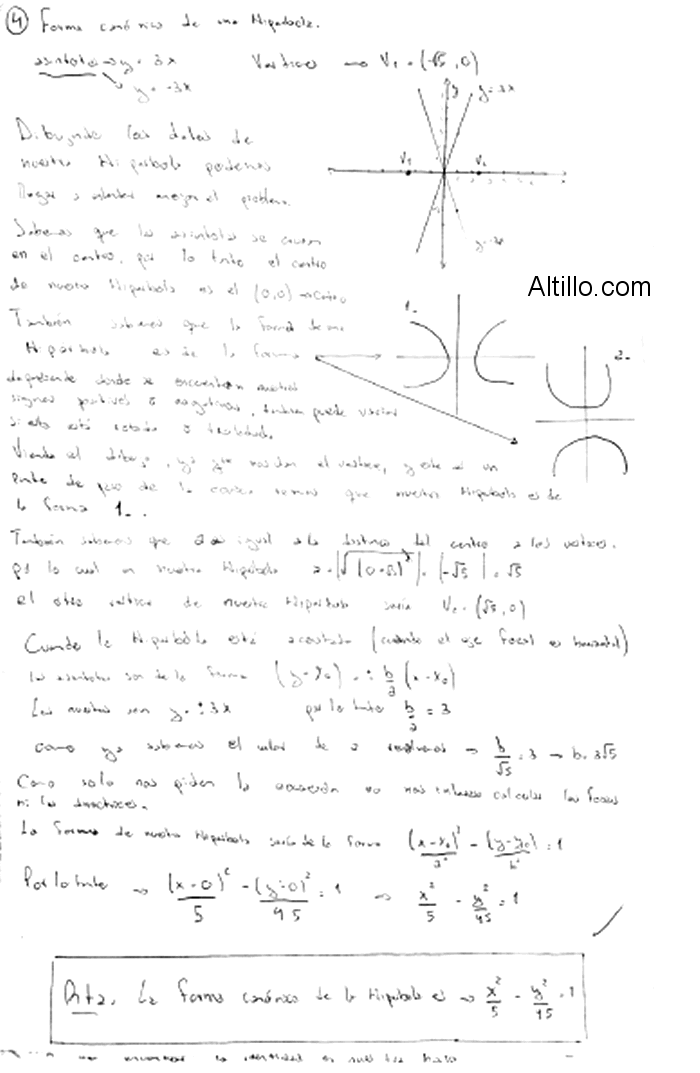 4 Forma canónica de una Hipérbola.
asintotas → y = 3x Vertices → V1 = (-√5, 0)
y = -3x
y
y=3x
Dibujando los datos de
nuestra Hipérbola podemos
V1 V2
llegar a entender mejor el problema.
Sabemos que las asintotas se cruzan
en el centro, por lo tanto el centro
y=-3x
de nuestra Hiperbola es el (0,0) → centro
Altillo.com
También sabemos que la forma de una
1.
Hipérbola es de la forma
2.
donde se encuentran nuestros
signos positivos o negativos, tambien puede variar
si esta está rotada o trasladada.
Viendo el dibujo, ya que nos dan el vertice, y este es un
punto de de la curva vemos que nuestra Hipérbola es de
la forma 1.
También sabemos que a es igual a la distancia del centro a los vertices.
por lo cual en nuestra Hipérbola a = = |-√5| = √5
el otro vertice de nuestra Hipérbola seria V2 = (√5, 0)
Cuando la Hipérbola está acostada (cuando el eje focal es horizontal)
las asintotas son de la forma (y-y0) = ± b/a (x-x0)
Las nuestras son y = ±3x por lo tanto b/a = 3
como ya sabemos el valor de a resolvemos → b/√5 = 3 → b = 3√5
Como solo nos piden la ecuación no nos interesa calcular los focos
ni las directrices.
La forma de nuestra Hipérbola seria de la forma (x-x0)²/a² - (y-y0)²/b² = 1
Por lo tanto → (x-0)²/5 - (y-0)²/45 = 1 → x²/5 - y²/45 = 1
Rta. La forma canónica de la Hipérbola es → x²/5 - y²/45 = 1